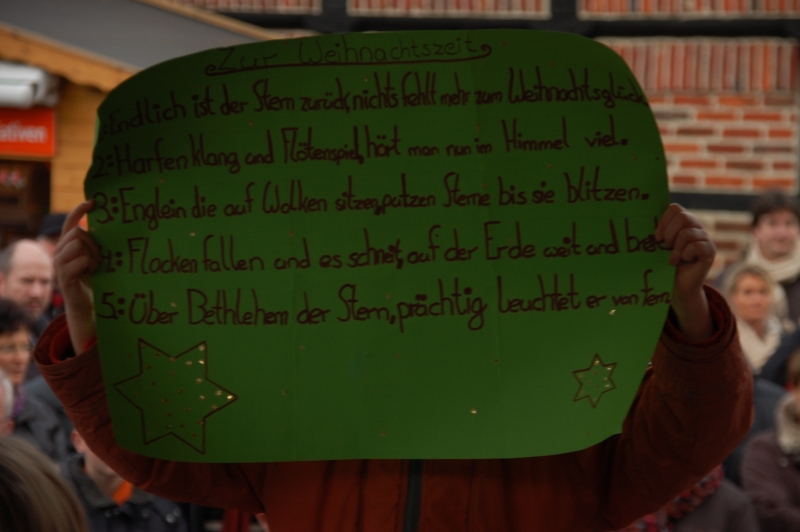 Zur Weihnachtszeit
1.: Endlich ist der Stern zurück, nichts fehlt mehr zum Weihnachtsglück
2.: Harfenklang und Flötenspiel, hört man nun im Himmel viel.
3.: Englein die auf Wolken sitzen, putzen Sterne bis sie blitzen.
4.: Flocken fallen und es schneit, auf der Erde weit und breit
5.: Über Bethlehem der Stern, prächtig leuchtet er von fern.